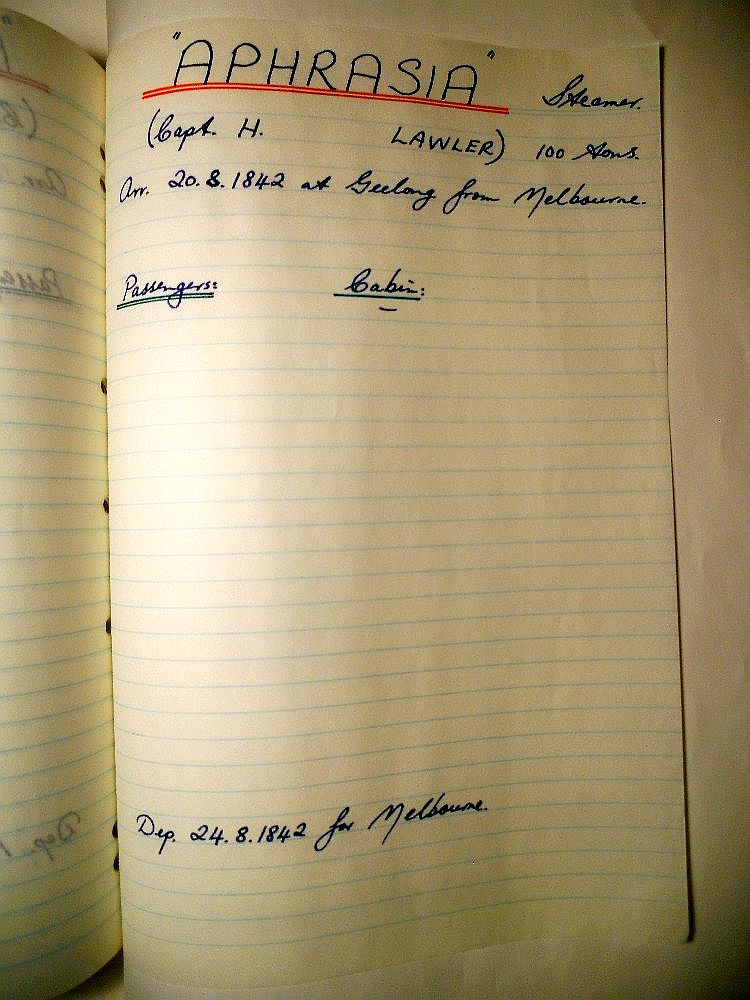 "APHRASIA" Steamer.
(Capt. H. LAWLER) 100 tons.
Arr. 20.8.1842 at Geelong from Melbourne.
Passengers: Cabin:
–
Dep. 24.8.1842 for Melbourne.